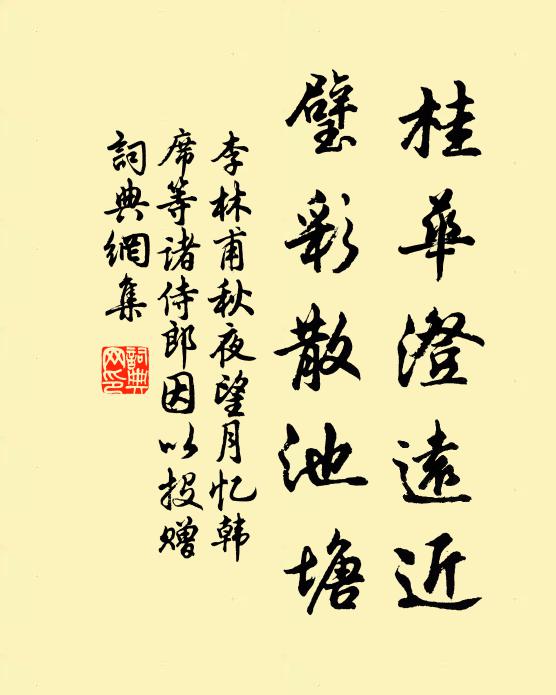 桂華澄遠近
璧彩散池塘
李林甫秋夜望月忆韩
席等诸侍郎因以投赠
詞典網集
詞典
网印